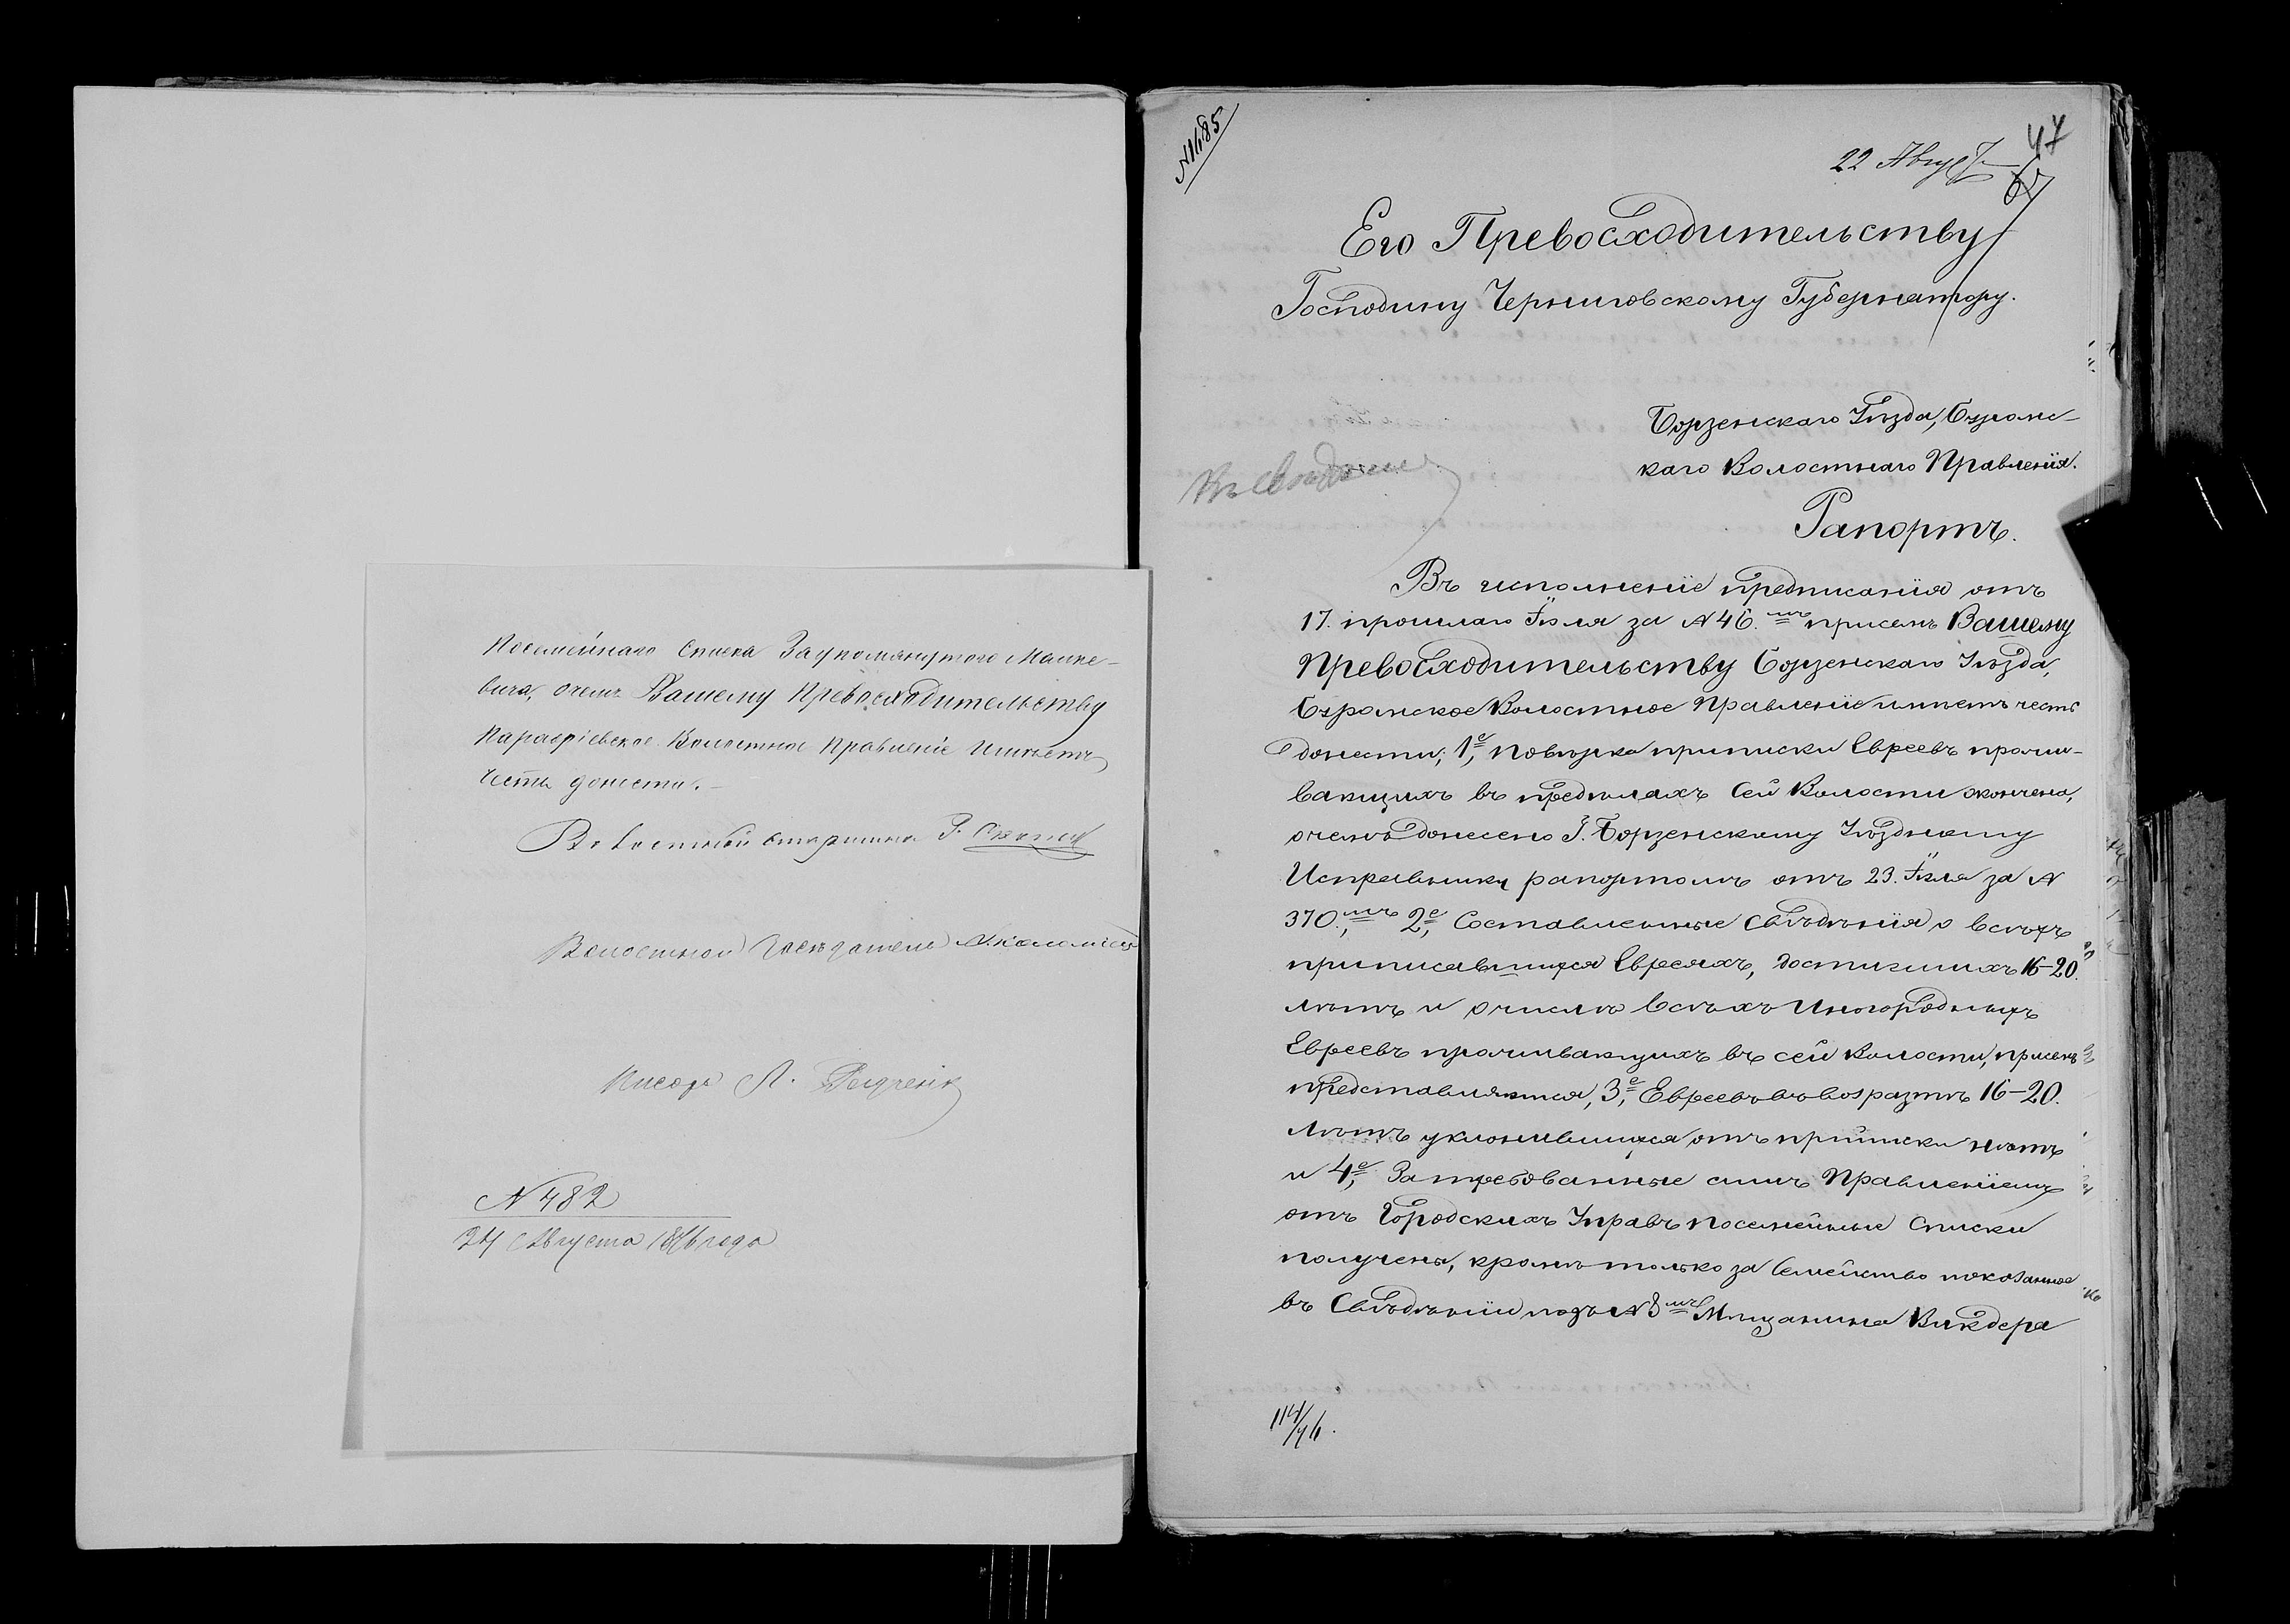 Посемейнаго Списка Заупомянутого Манке-
вича, очемъ Вашему Превосходительству
Парафіевское Волостное Правленіе Имѣетъ
Честь донести.-
Волостной старшина Г.
Волостной Засѣдатель
Писарь Л.
№ 482
24 Августа 1876 года
№ 1685
47
22 Август
Его Превосходительству
Господину Черниговскому Губернатору.
Борзенскаго Уѣзда, Бурамс-
каго Волостнаго Правленія.
Къ свѣденію
Рапортъ.
Въ исполненіе предписанія отъ
17. прошлаго Іюля за № 46.мъ присемъ Вашему
Превосходительству Борзенскаго Уѣзда,
Бурамское Волостное Правленіе имѣетъ честь
донести; 1е, повѣрка приписки Евреевъ прожи-
вающихъ въ предѣлахъ сей Волости окончена,
очемъ донесено Г. Борзенскому Уѣздному
Исправнику рапортомъ отъ 23. Іюля за №
370.,мъ 2е, Составленные свѣдѣнія о всѣхъ
приписавшихся Евреяхъ, достигшихъ 16-20.
лѣтъ и очислѣ всѣхъ Иногородныхъ
Евреевъ проживающихъ въ сей Волости, присемъ
представляются, 3е, Евреевъ въ возрастѣ 16-20.
лѣтъ уклонившихся отъ приписки нѣтъ
и 4е, Затребованные симъ Правленіемъ
отъ Городскихъ Управъ посемейные Списки
получены, кромѣ только за Семейство показанное
въ Свѣдѣніи подъ № 8мъ Мѣщанина Викдера
114/46.